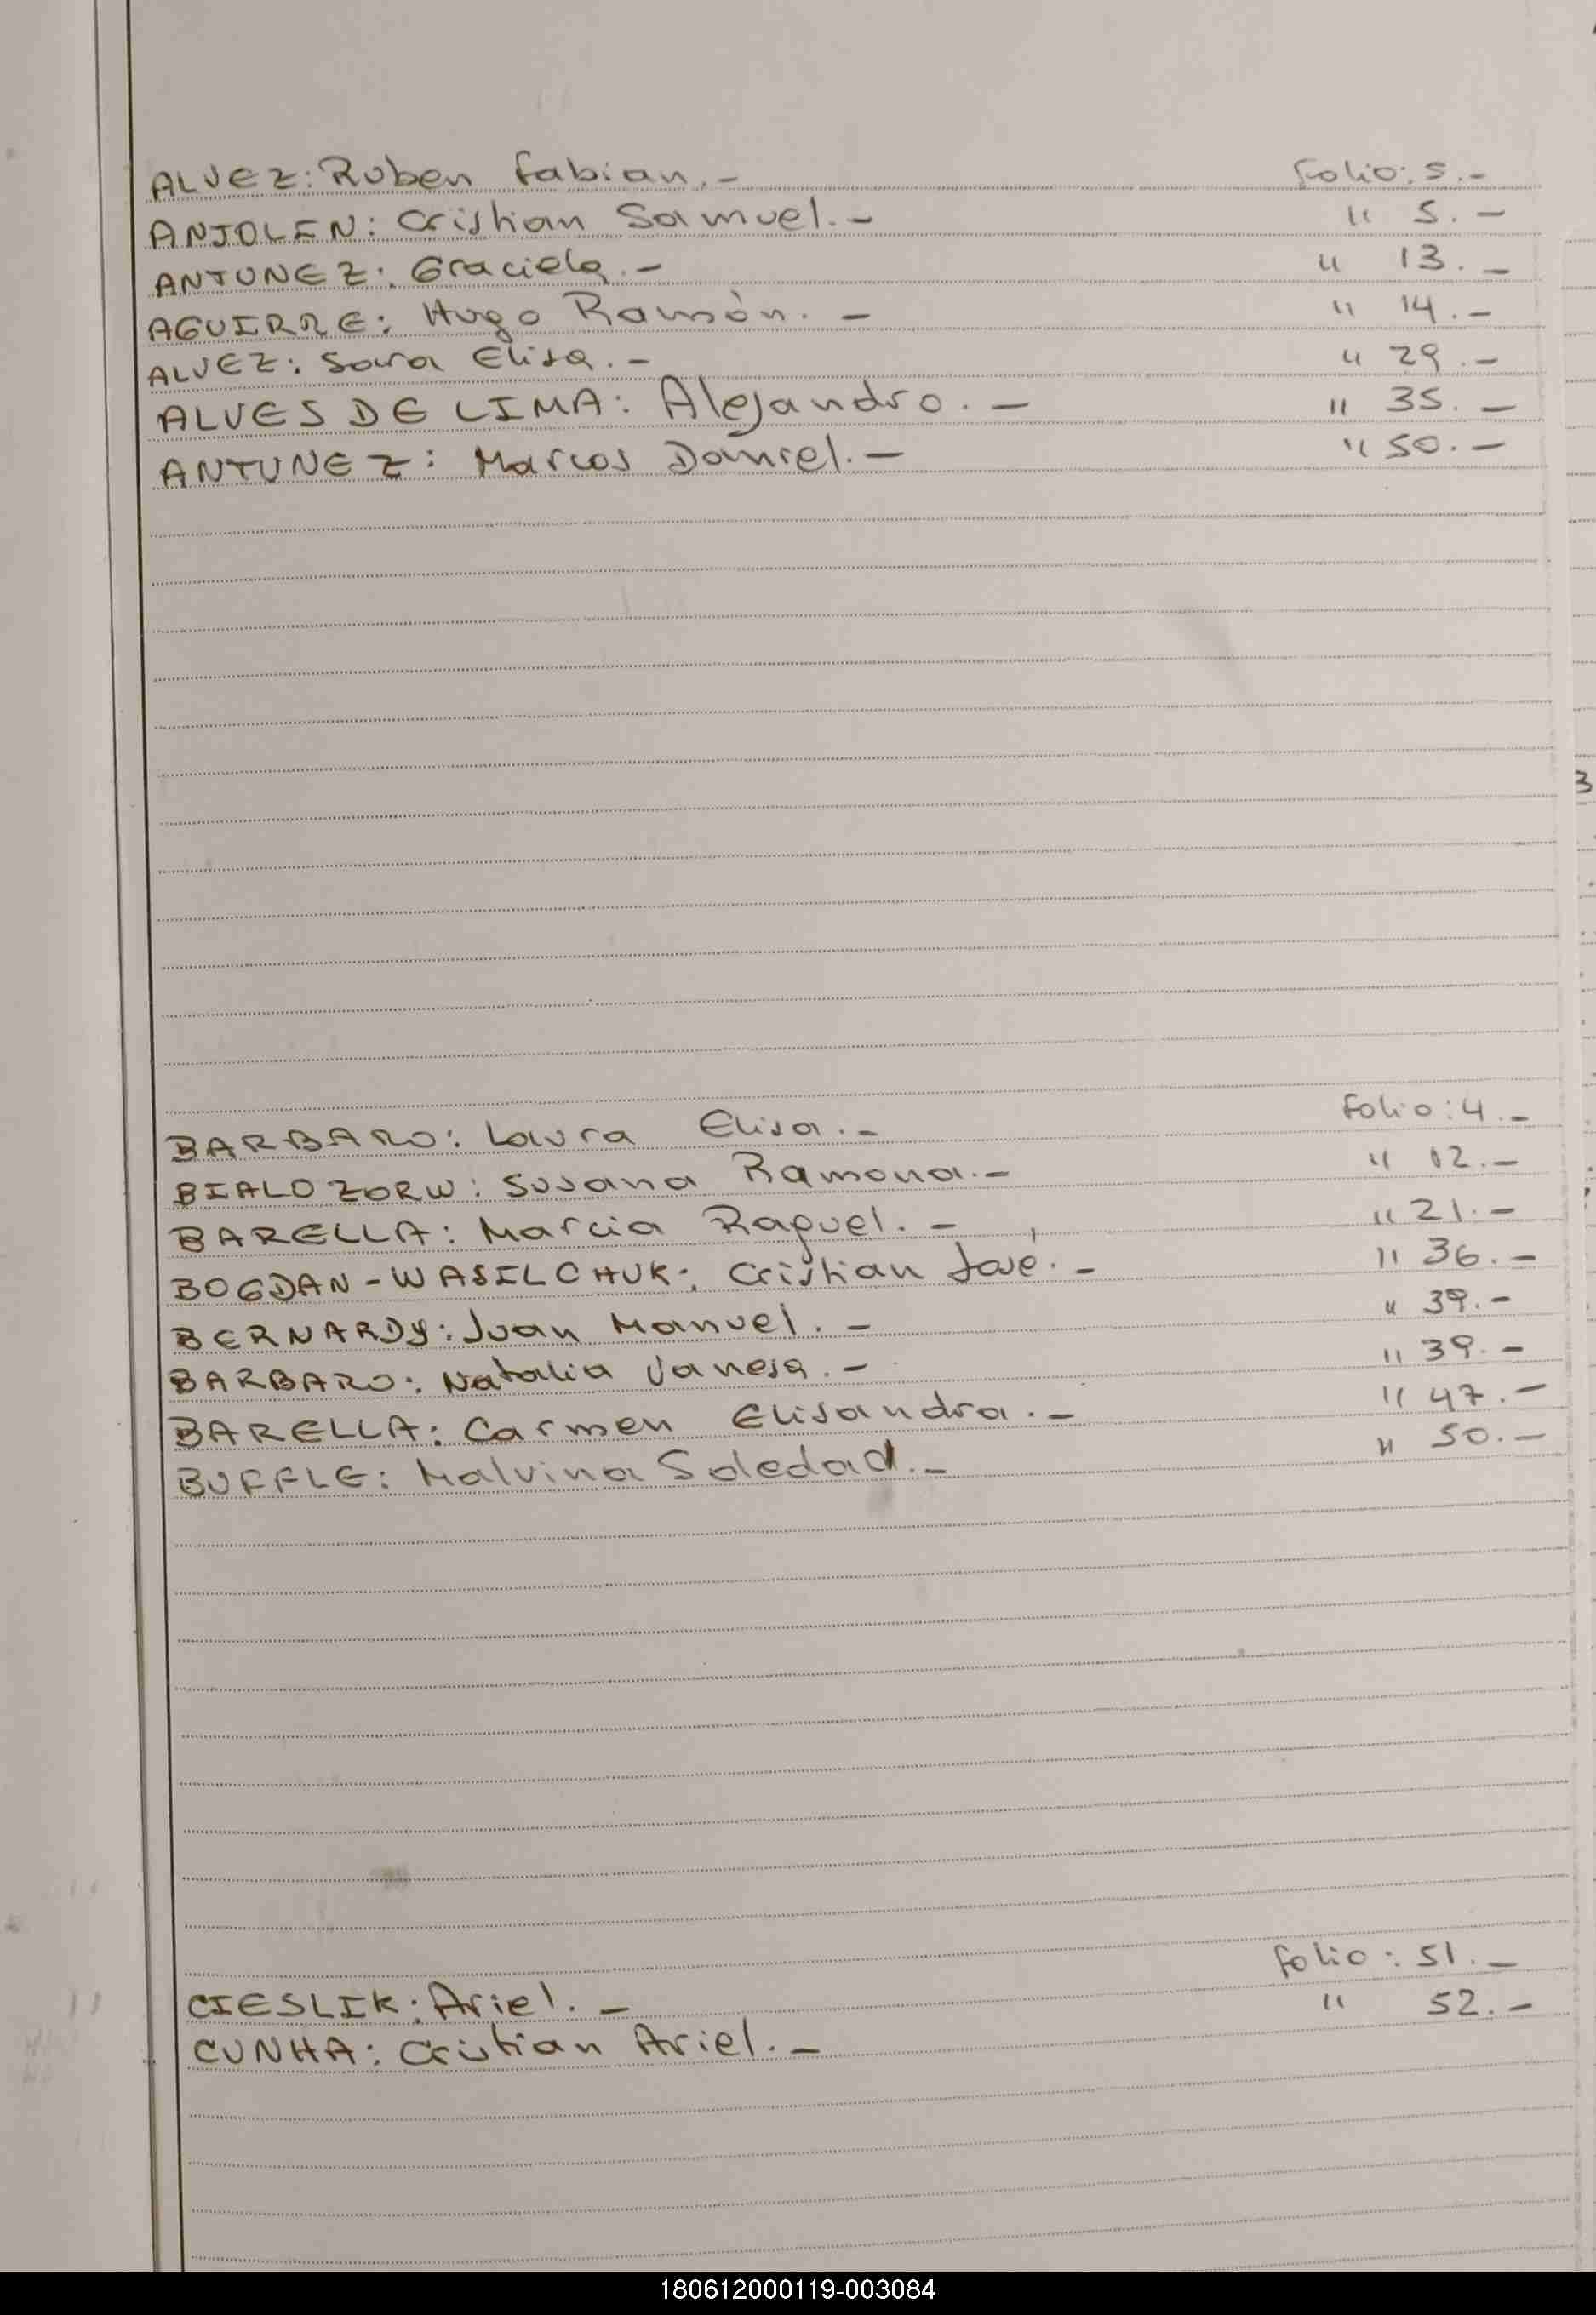 ALVEZ: Ruben Fabian.- Folio: 5.-
ANJOLEN: Cristian Samuel.- " 5.-
ANTUNEZ: Graciela.- " 13.-
AGUIRRE: Hugo Ramón.- " 14.-
ALVEZ: Sara Elisa.- " 29.-
ALVES DE LIMA: Alejandro.- " 35.-
ANTUNEZ: Marcos Daniel.- " 50.-
BARBARO: Laura Elisa.- Folio: 4.-
BIALOZORW: Susana Ramona.- " 12.-
BARELLA: Marcia Raquel.- " 21.-
BOGDAN-WASILCHUK: Cristian José.- " 36.-
BERNARDY: Juan Manuel.- " 39.-
BARBARO: Natalia Vanesa.- " 39.-
BARELLA: Carmen Elisandra.- " 47.-
BUFFLE: Malvina Soledad.- " 50.-
CIESLIK: Ariel.- Folio: 51.-
CUNHA: Cristian Ariel.- " 52.-
180612000119-003084